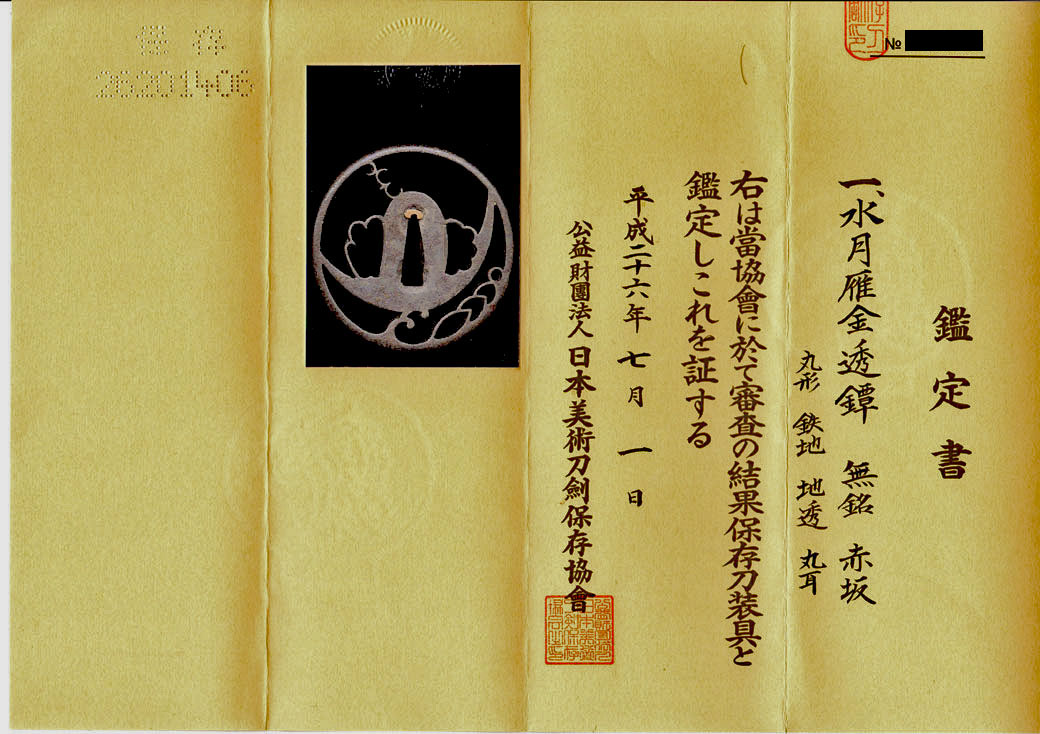 №
鑑定書
一、水月雁金透鐔 無銘 赤坂
丸形 鉄地 地透 丸耳
右は當協會に於て審査の結果保存刀装具と
鑑定しこれを証する
平成二十六年 七月 一日
公益財團法人 日本美術刀劍保存協會
保存
26201406